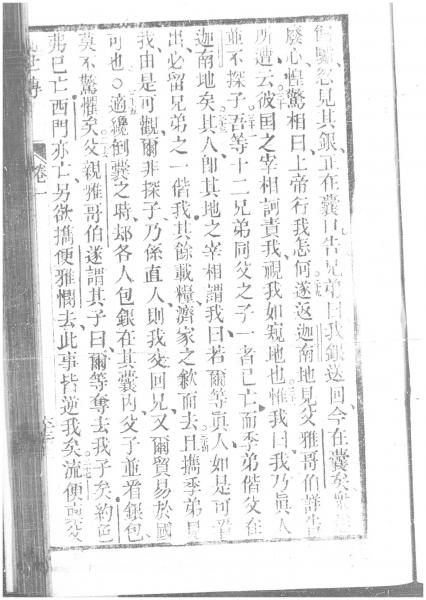 飼驢忽見其銀正在囊口告兄弟曰我銀送回今在囊矣衆
廢心惶驚相曰上帝行我怎何遂返迦南地見父雅哥伯詳告
所遭云彼國之宰相訶責我視我如窺地也惟我曰我乃眞人
並不探子吾等十二兄弟同父之子一者已亡而季弟偕父在
迦南地矣其人即其地之宰相謂我曰若爾等眞人如是可看
出必留兄弟之一偕我其餘載糧濟家之歉而去且攜季弟見
我由是可觀爾非探子乃係直人則我交回兄又爾貿易於國
可也○適纔倒囊之時却各人包銀在其囊內父子並看銀包
莫不驚懼矣父親雅哥伯遂謂其子曰爾等奪去我子矣約色
弗已亡西門亦亡另欲攜便雅憫去此事皆逆我矣流便與父
卷一